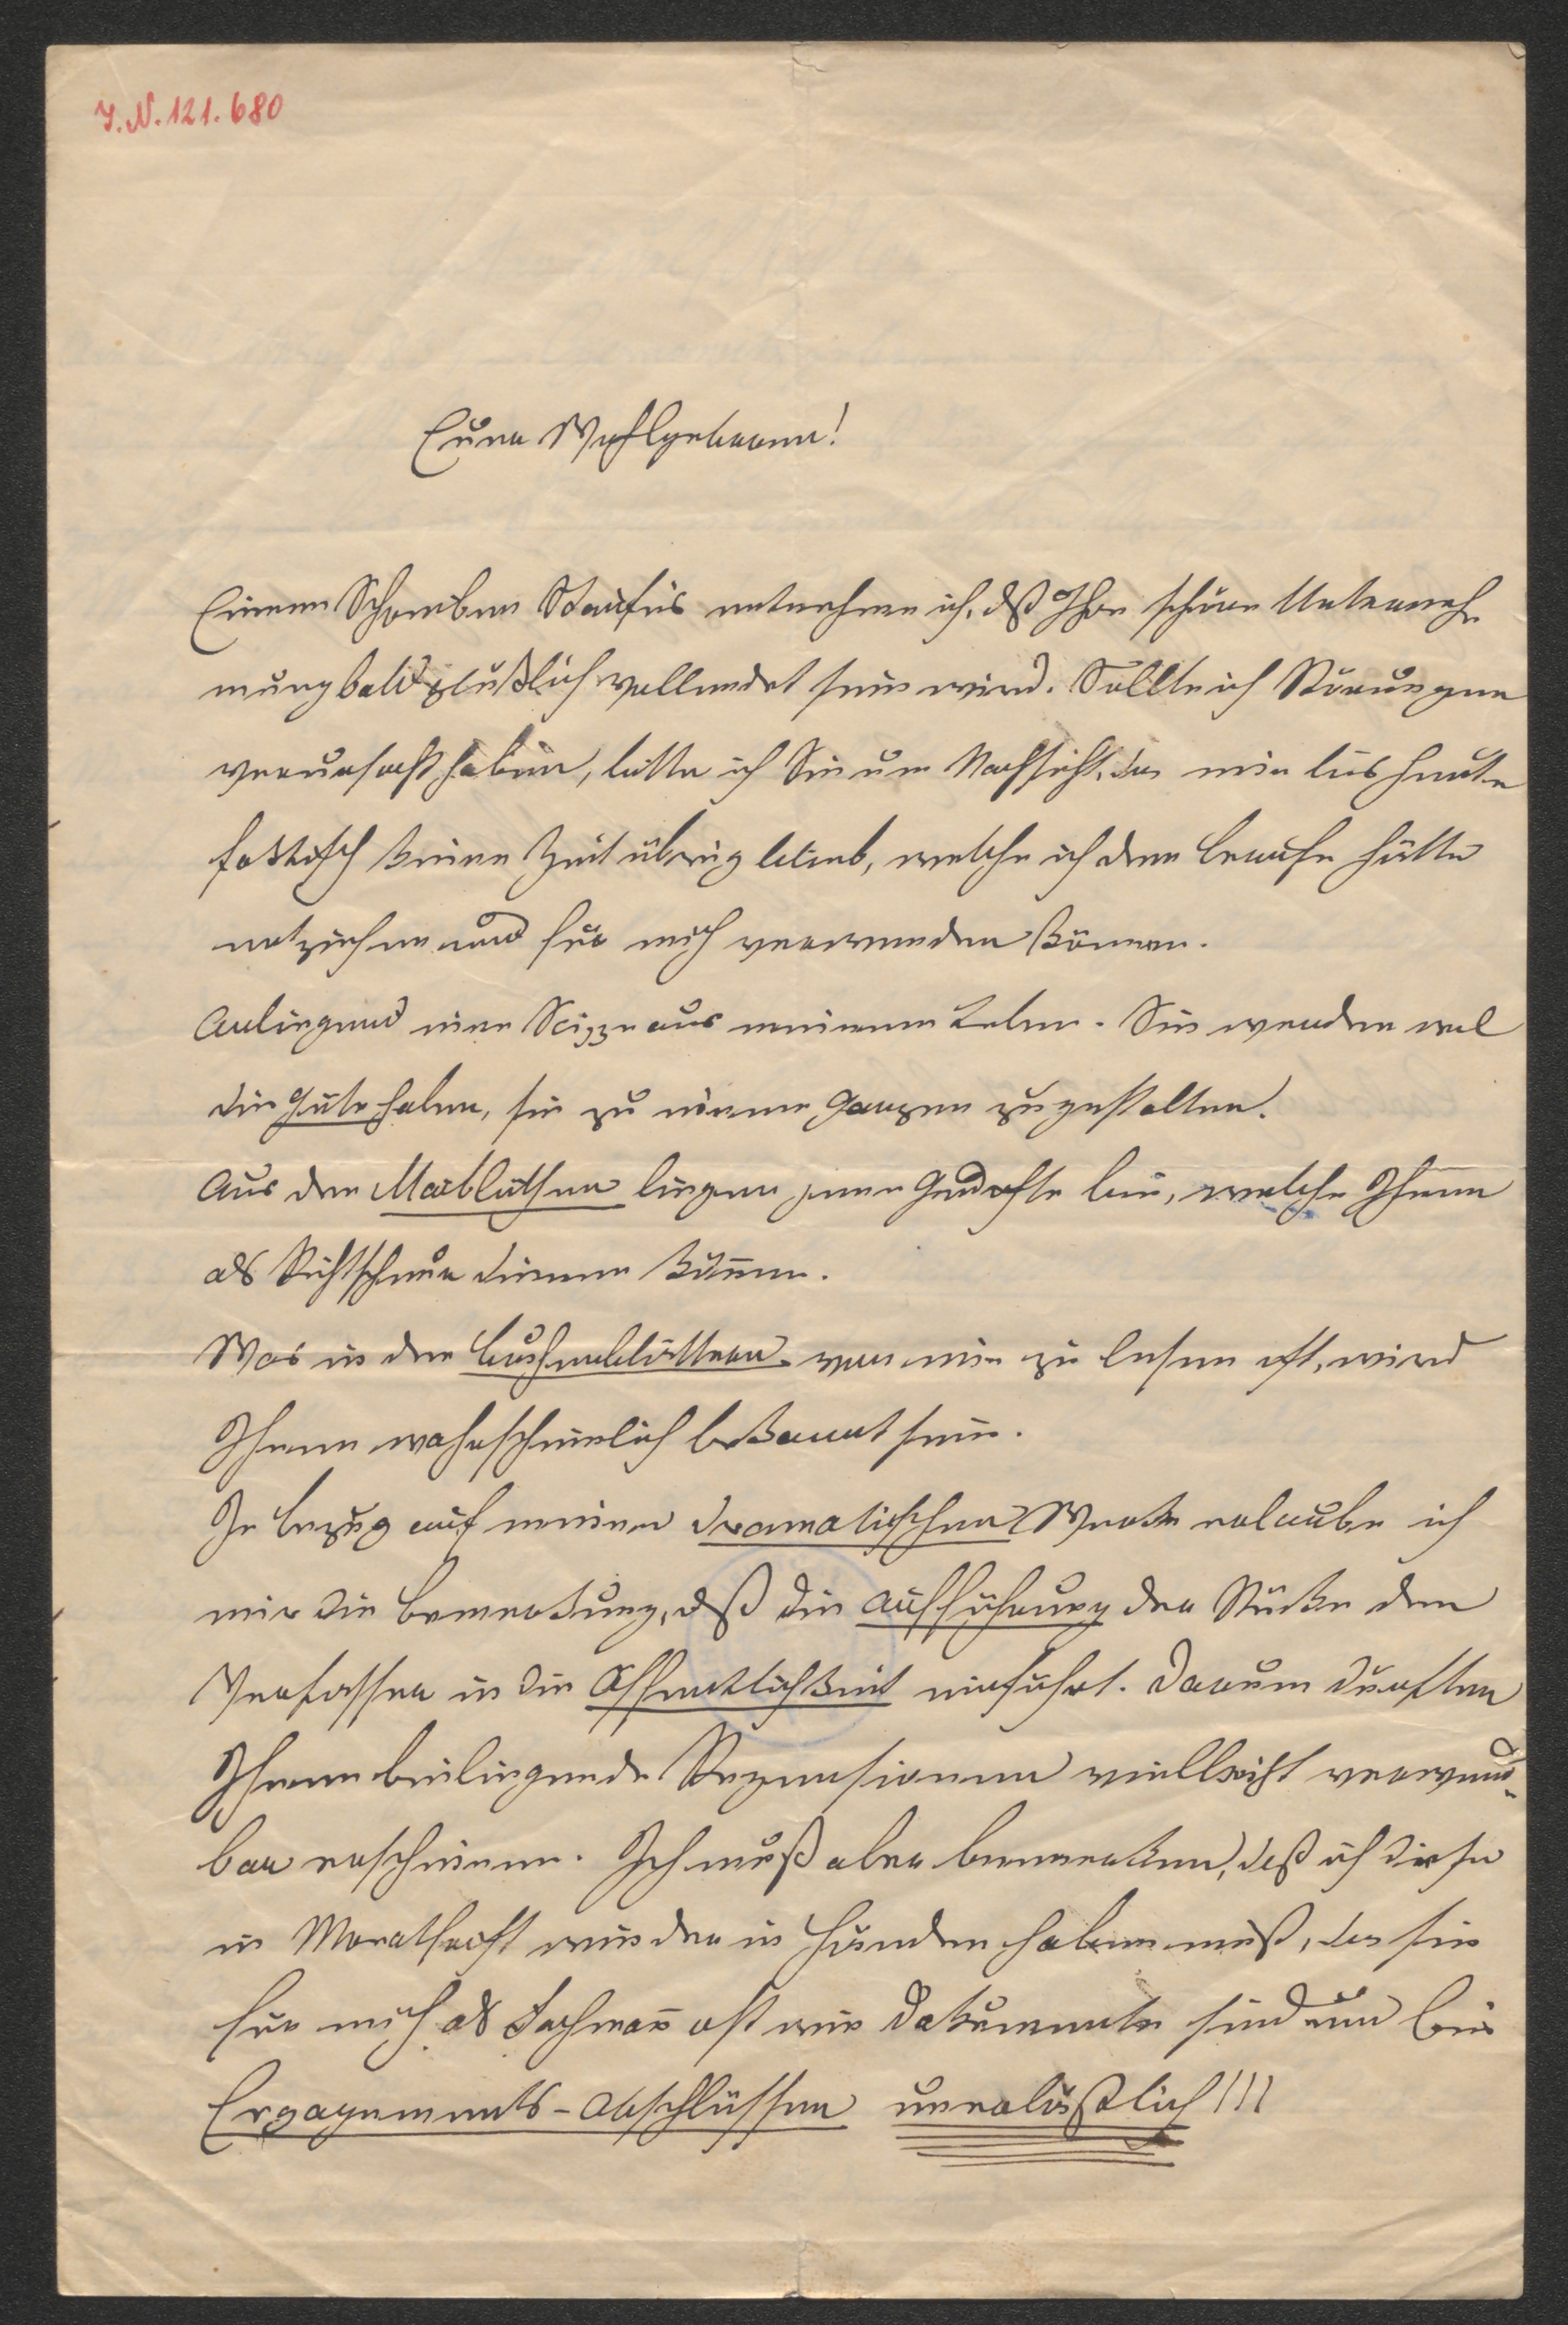 J.N. 121.680
Euer Wohlgeboren!
Einem Schreiben Staufis entnehme ich, dß Ihr schönes Unterneh
mung bald glücklich vollendet sein wird. Sollte ich Störungen
verursacht haben, bitte ich Sie um Nachsicht, da mir bis heute
faktisch keine Zeit übrig blieb, welche ich dem Berufe hätte
entziehen und für mich verwenden können.
Anliegend eine Scizze aus meinem Leben. Sie werden wol
die Güte haben, sie zu einem Ganzen zu gestalten.
Aus den Maiblüthen liegen jene Gedichte bei, welche Ihnen
als Richtschnur dienen können.
Was in den Buschenblättern von mir zu lesen ist, wird
Ihnen wahrscheinlich bekannt sein.
In bezug auf meine dramatischen Werke erlaube ich
mir die Bemerkung, dß die Aufführung der Stücke den
Verfasser in die Öffentlichkeit einführt. Darum dürften
Ihnen beiliegende Rezensionen vielleicht verwend-
bar erscheinen. Ich muß aber bemerken, daß ich diese
in Monatsfrist wieder in Händen haben muß, da sie
für mich als Fachmañ oft wie Dokumente sind und bei
Engagements-Abschlüssen unerläßlich!!!